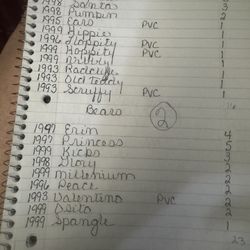 1998 Santa 3
1998 Pumpkin 2
1995 Ears PVC 1
1999 Hippie 1
1996 Hoppity PVC 1
1999 Hippity PVC 1
1999 1
1993 Radcliffe 1
1993 Old Teddy 1
1993 Scruffy PVC 1
Bears 2
1997 Erin 4
1997 Princess 5
1999 Kicks 3
1998 Glory 2
1999 millenium 2
1996 Peace 2
1993 Valentino PVC 2
1999 Osito 2
1999 Spangle
23